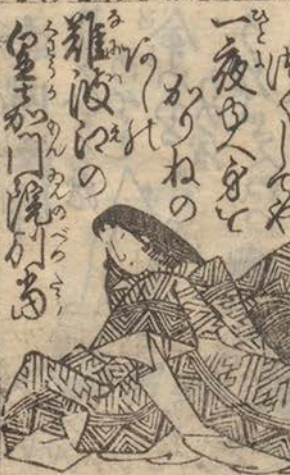 皇嘉門院別当
くわうかもんゐんのべつたう
難波江の
なにはえ
あしの
かりねの
一夜ゆへ身を
ひとよ
つくしてや